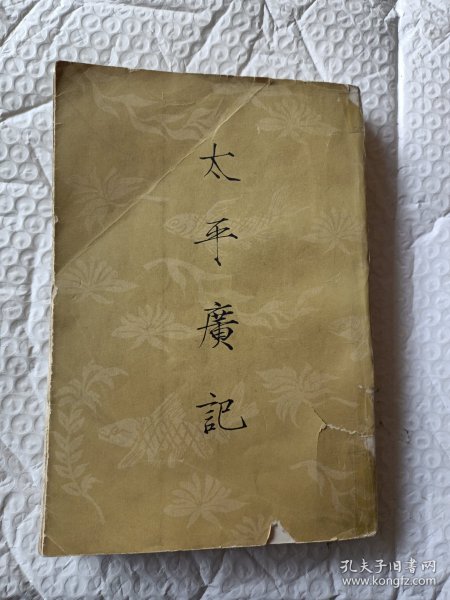 太平廣記
孔夫子旧书网
www.kongfz.com